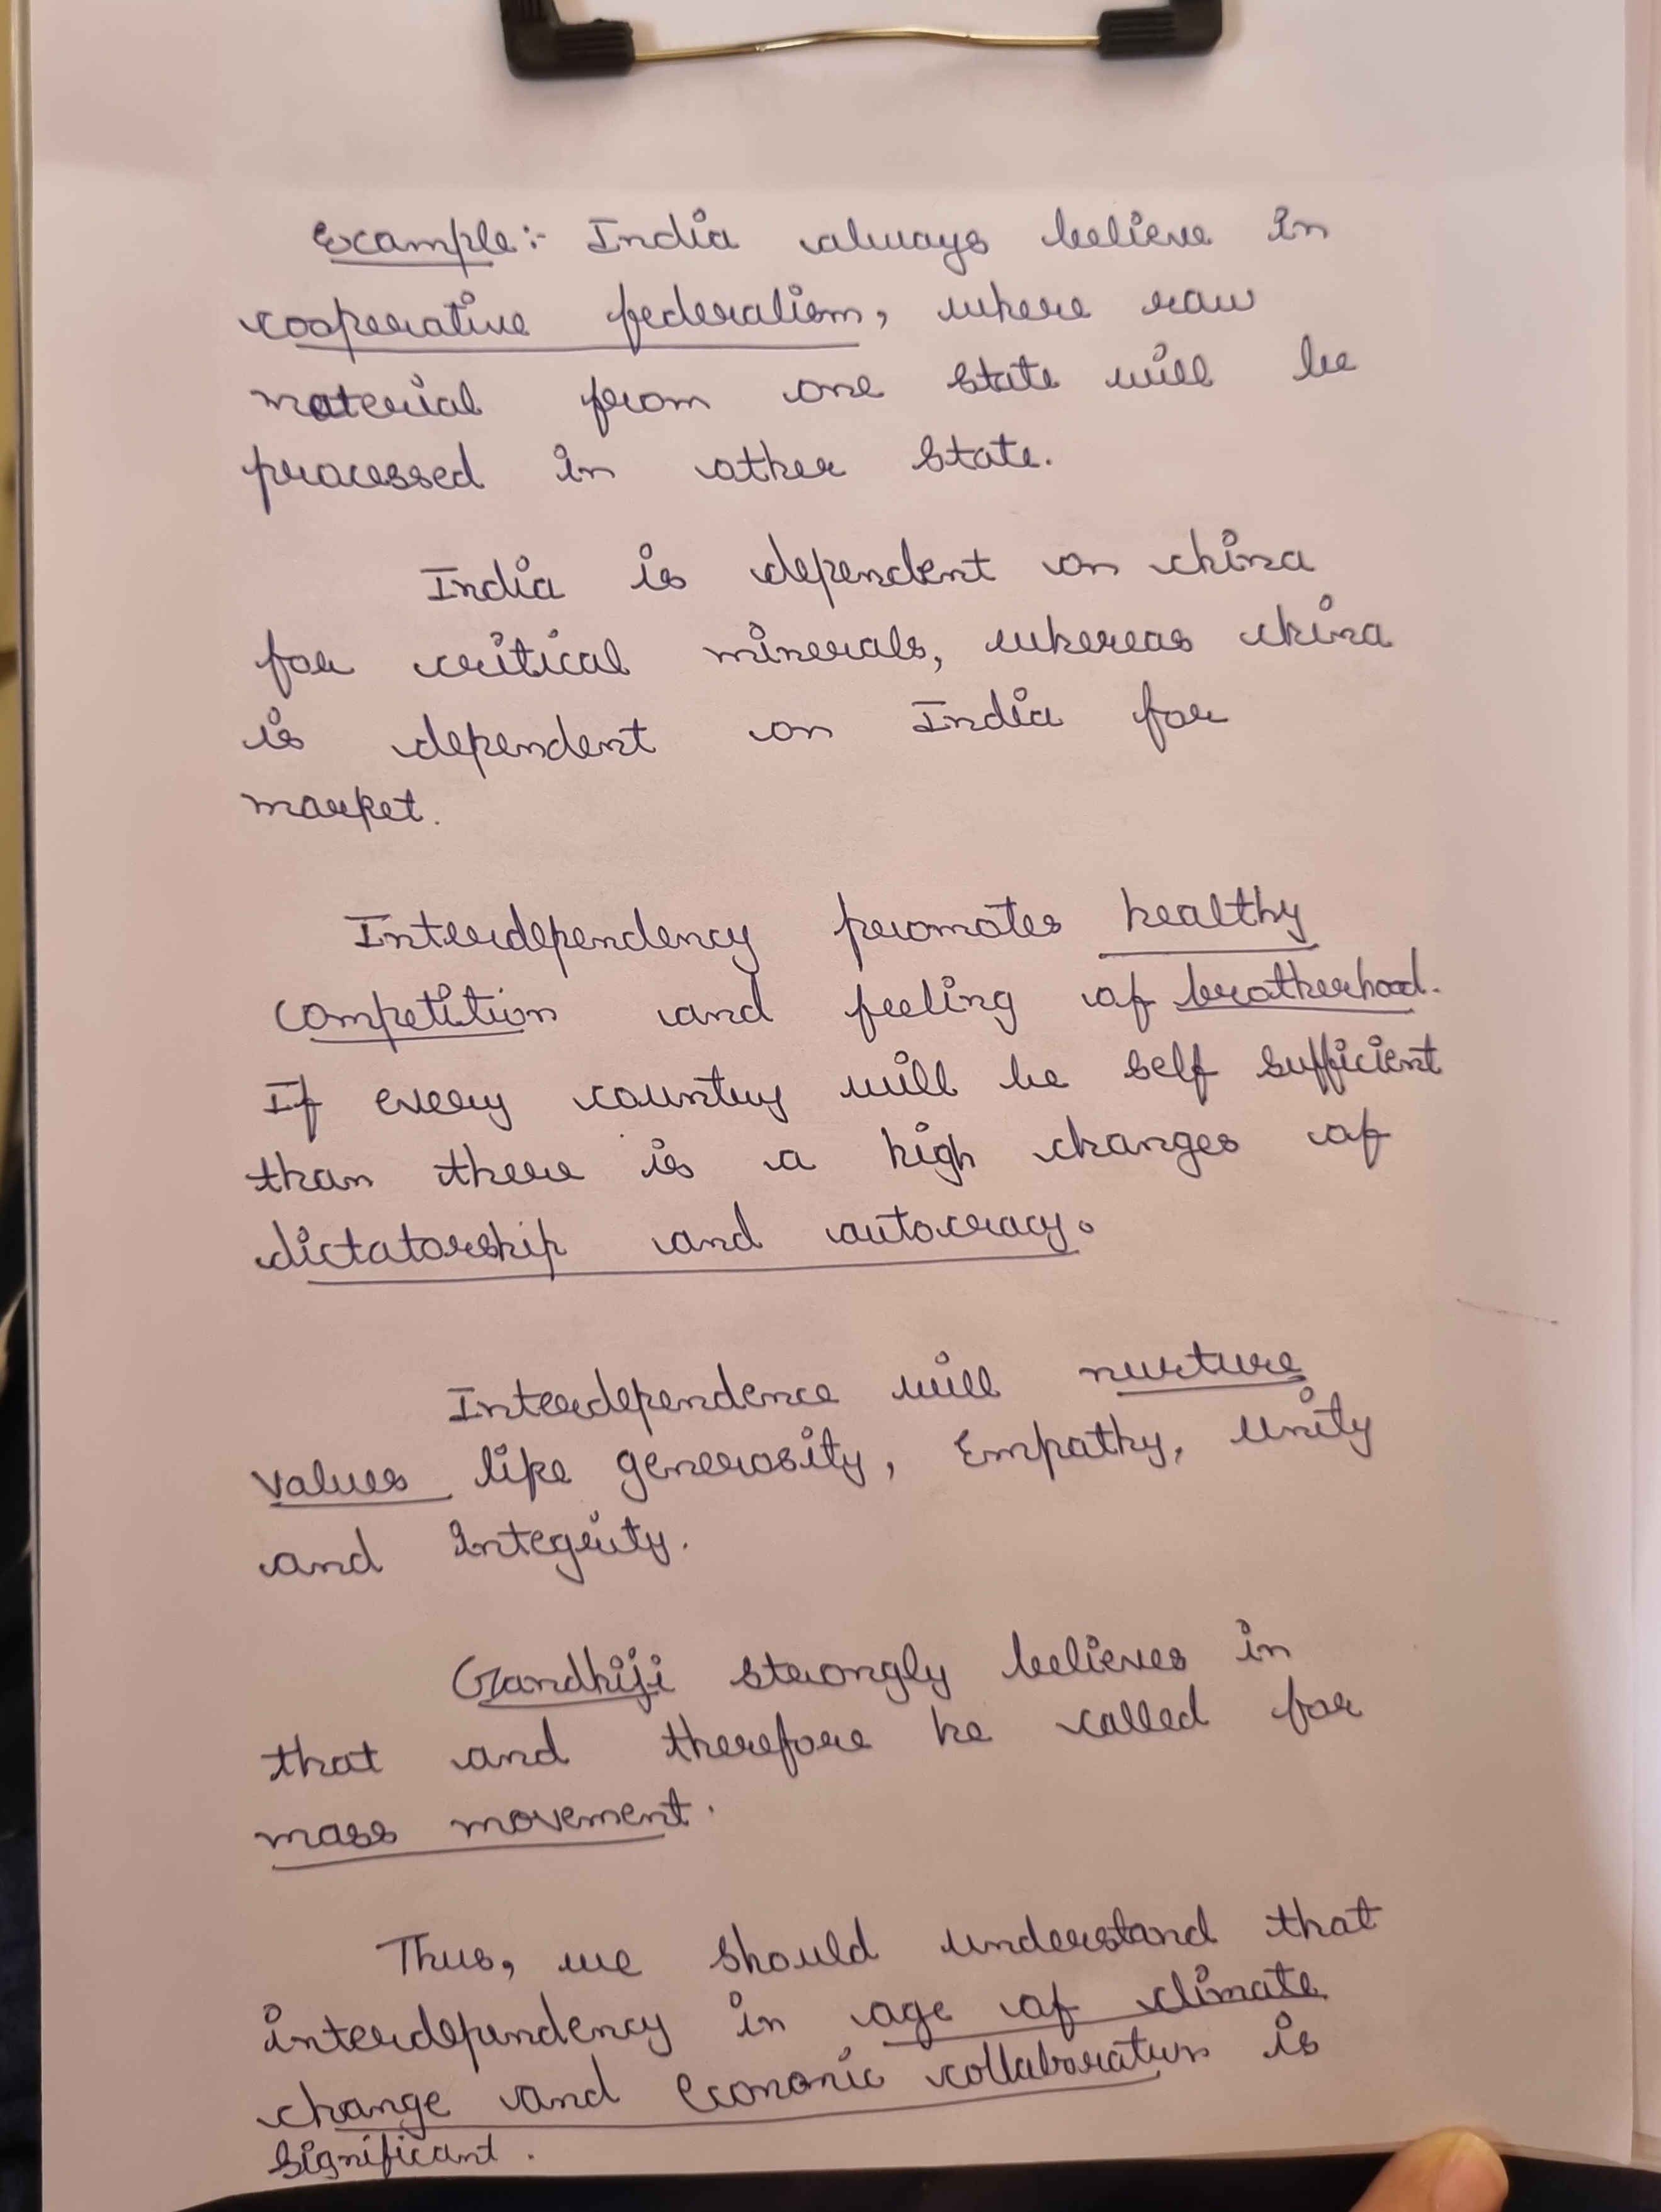 Example:- India always believe in
cooperative federalism, where raw
material from one state will be
processed in other state.
India is dependent on china
for critical minerals, whereas china
is dependent on India for
market.
Interdependency promotes healthy
competition and feeling of brotherhood.
If every country will be self sufficient
than there is a high changes of
dictatorship and autocracy.
Interdependence will nurture
values like generosity, Empathy, Unity
and Integrity.
Gandhiji strongly believes in
that and therefore he called for
mass movement.
Thus, we should understand that
interdependency in age of climate
change and economic collaboration is
significant.